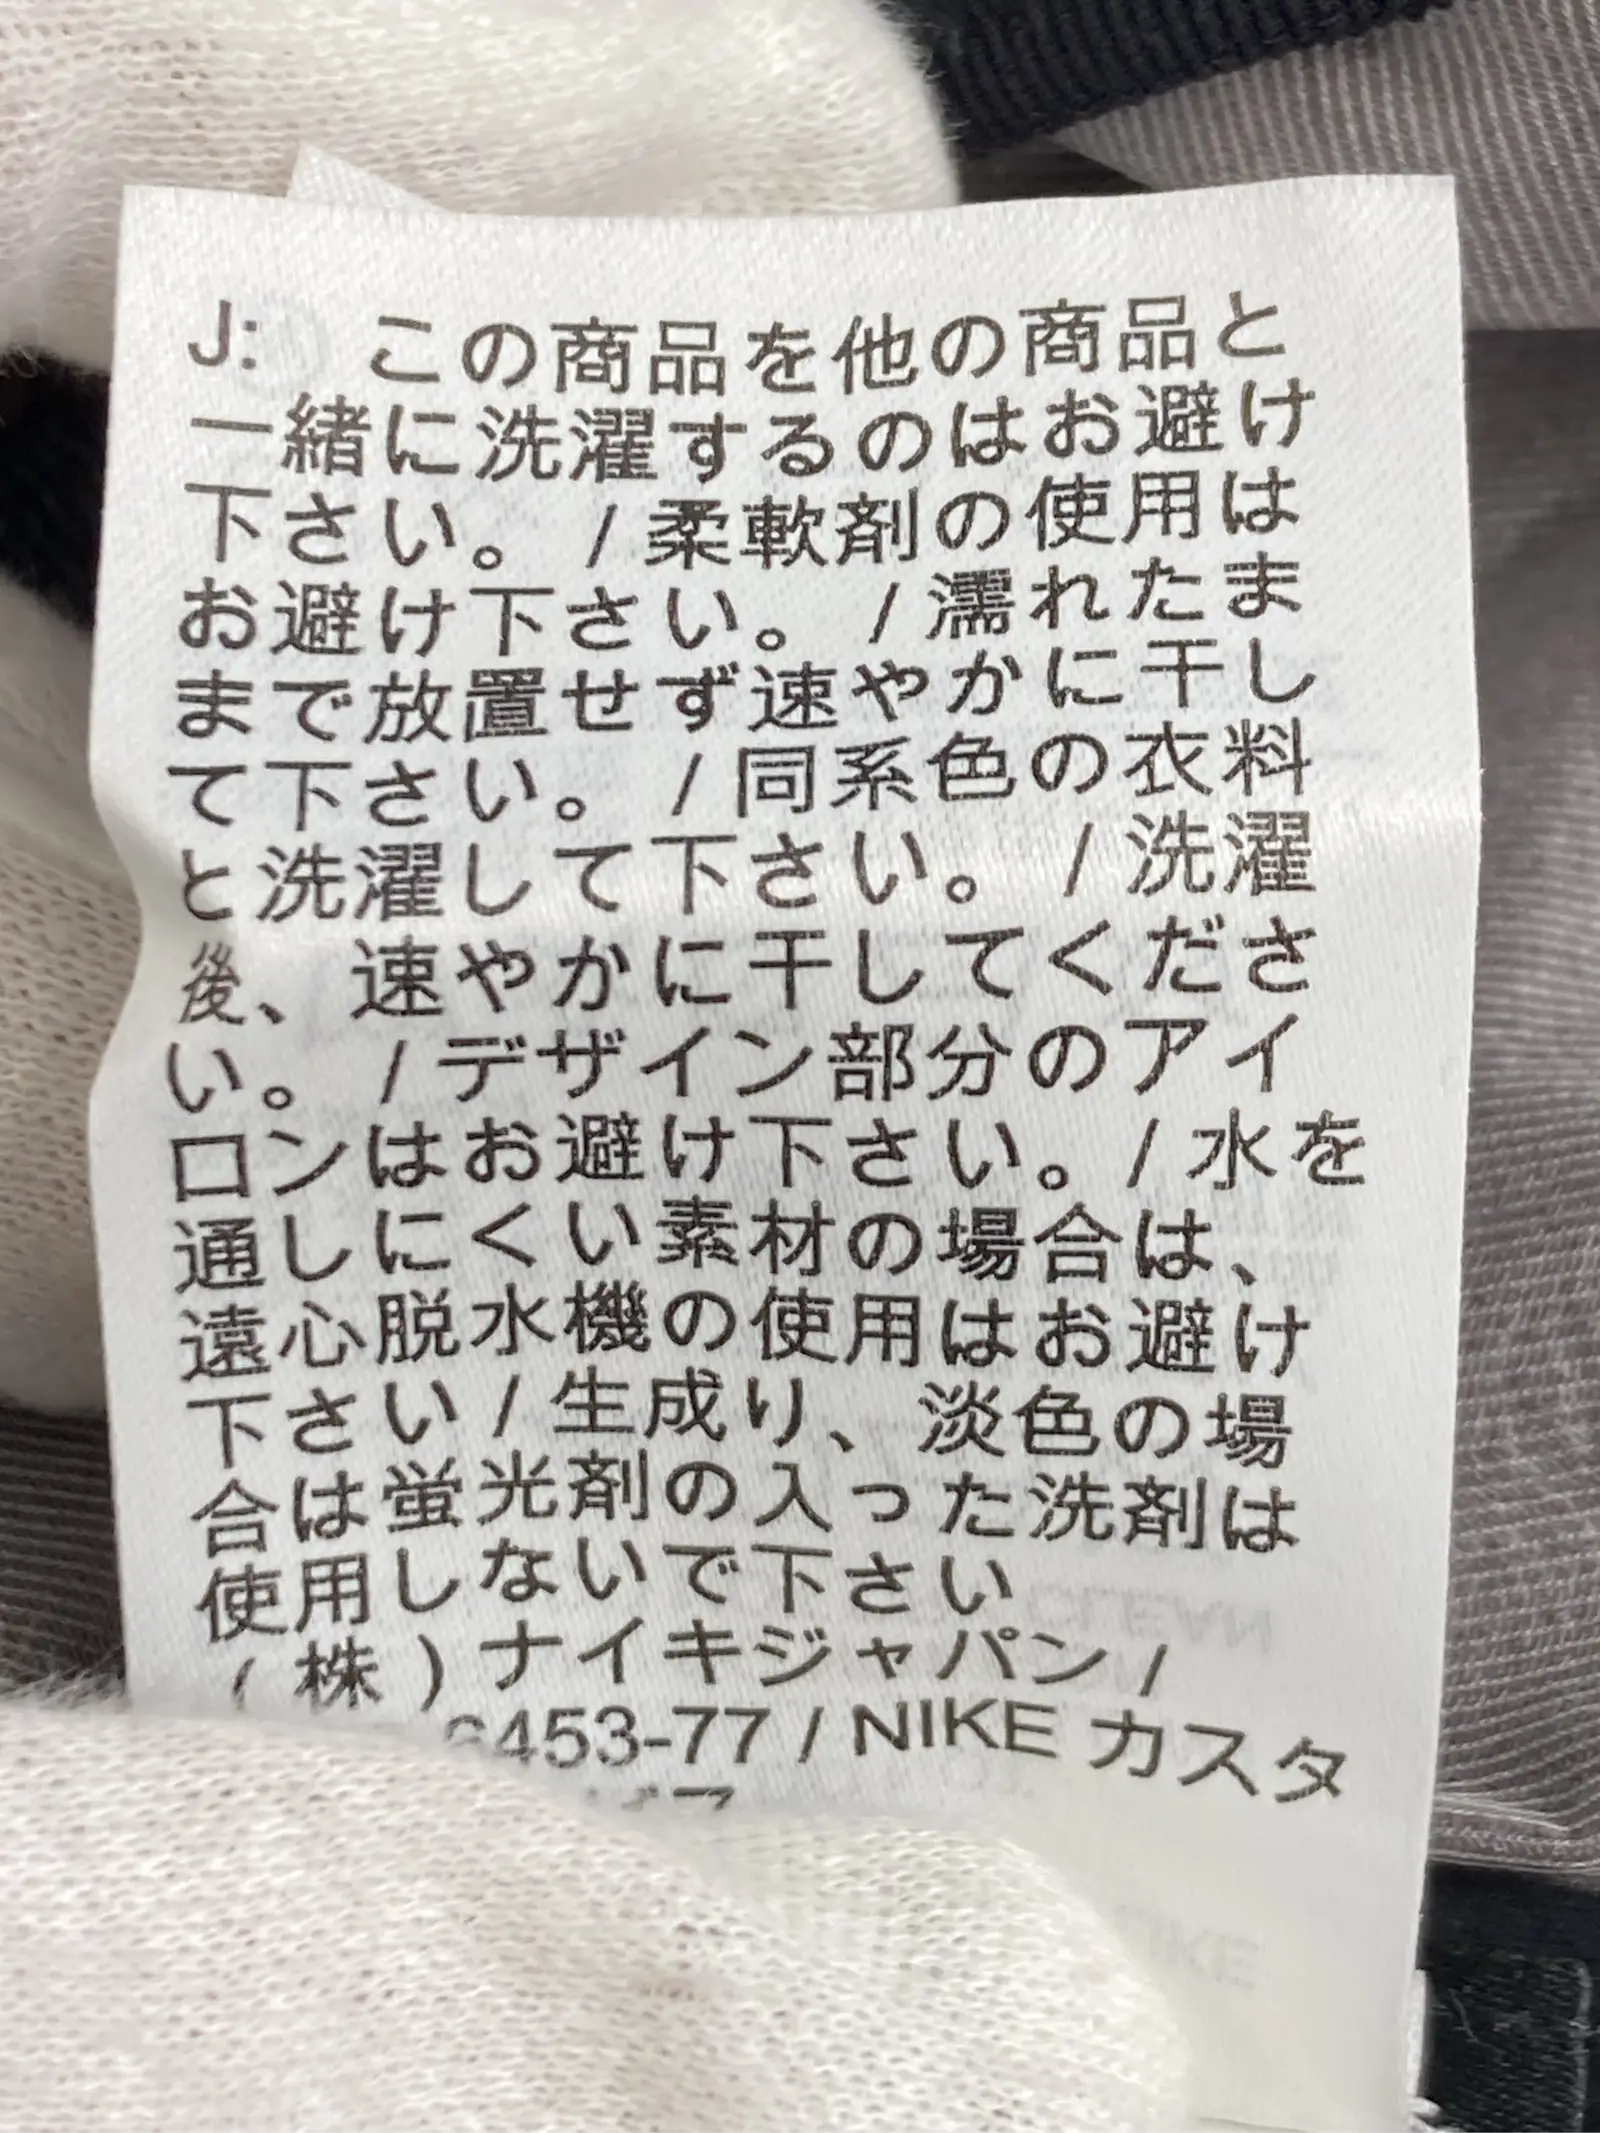 J: この商品を他の商品と
一緒に洗濯するのはお避け
下さい。 / 柔軟剤の使用は
お避け下さい。 / 濡れたま
まで放置せず速やかに干し
て下さい。 / 同系色の衣料
と洗濯して下さい。 / 洗濯
後、速やかに干してくださ
い。 / デザイン部分のアイ
ロンはお避け下さい。/ 水を
通しにくい素材の場合は、
遠心脱水機の使用はお避け
下さい / 生成り、淡色の場
合は蛍光剤の入った洗剤は
使用しないで下さい
(株)ナイキジャパン /
6453-77 / NIKE カスタ